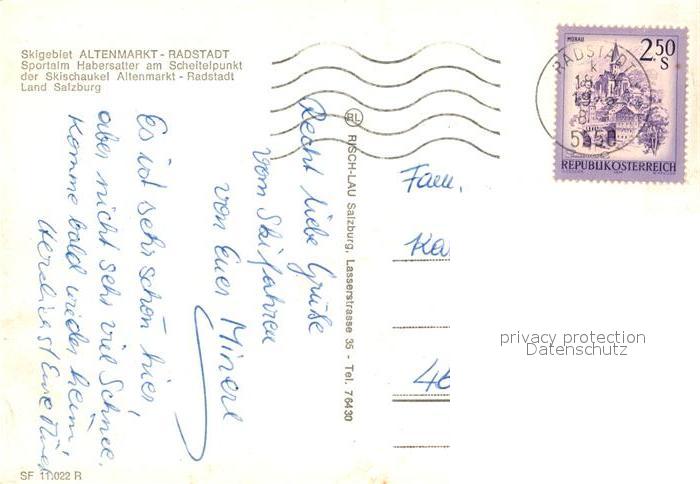 Skigebiet ALTENMARKT - RADSTADT
Sportalm Habersatter am Scheitelpunkt
der Skischaukel Altenmarkt - Radstadt
Land Salzburg
Recht liebe Grüße
vom Skifahren
von Euer
Es ist sehr schön hier,
aber nicht sehr viel Schnee.
Komme bald wieder heim!
Herzlichst Eure
RL RISCH-LAU Salzburg, Lasserstrasse 35 - Tel. 76430
Fam.
Ka
46
MURAU
2.50
S
REPUBLIK ÖSTERREICH
RADSTADT
privacy protection
Datenschutz
SF 11.022 R